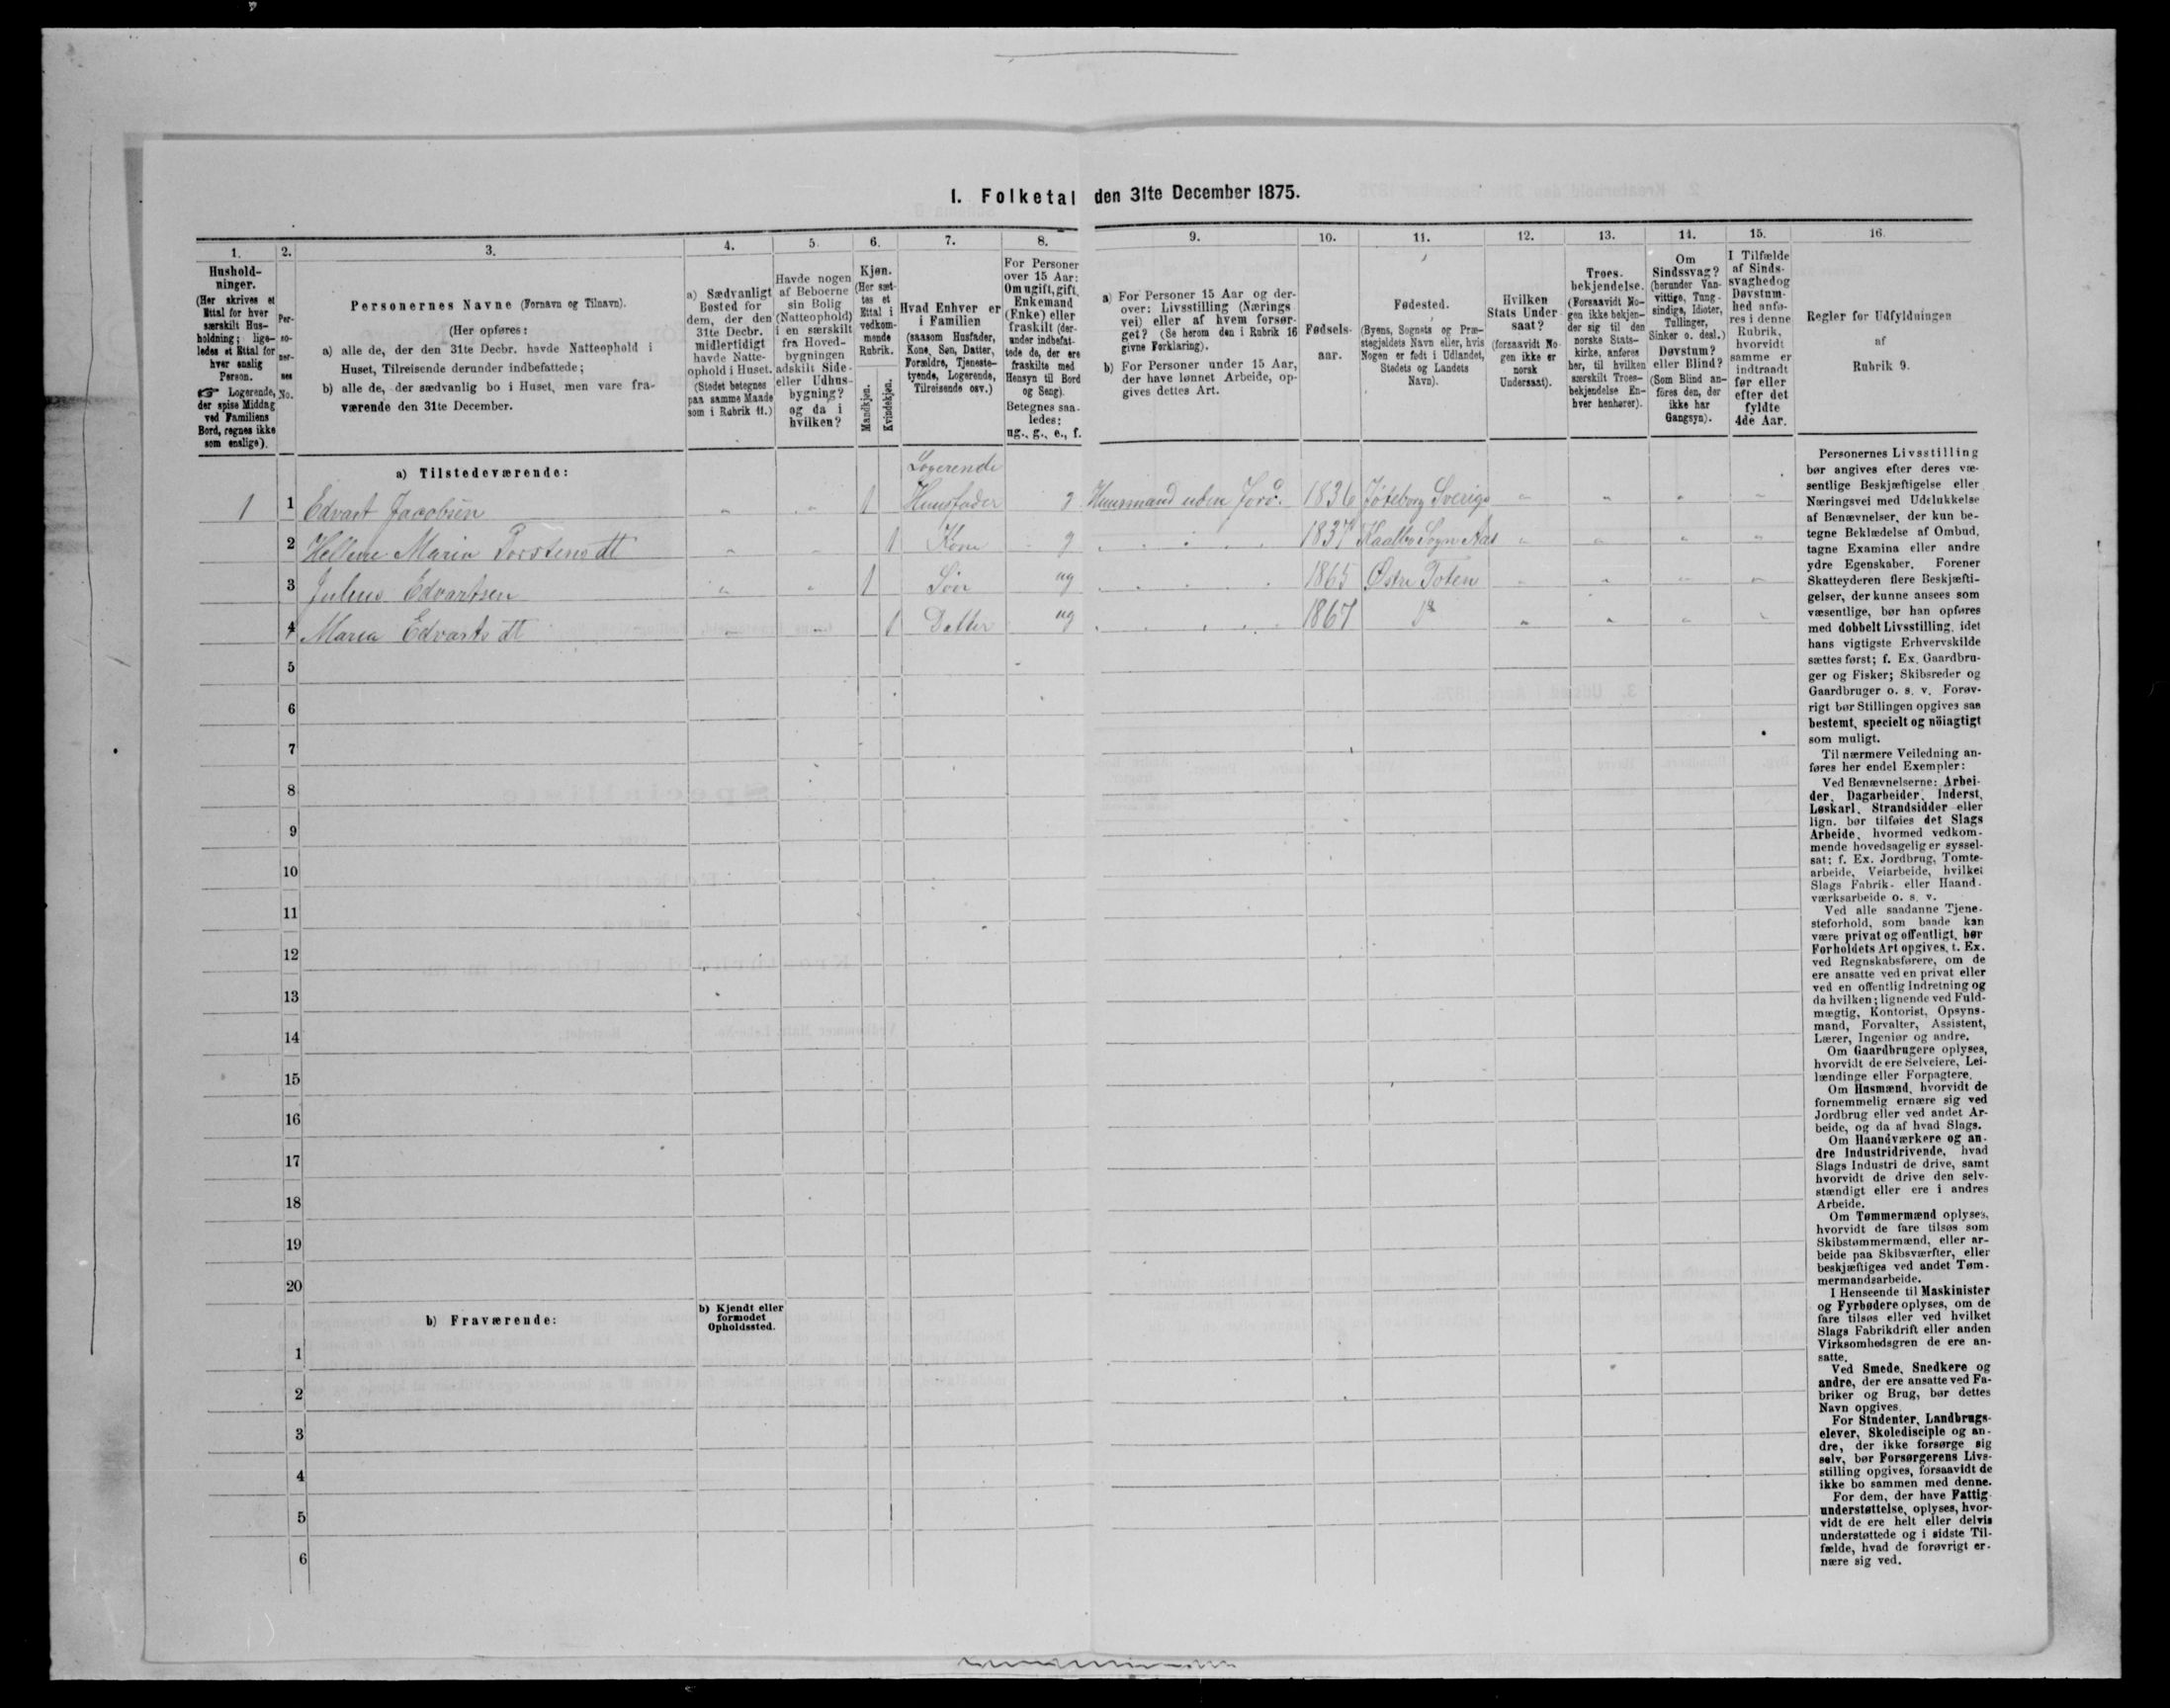 I. Folketal den 31te December 1875.
1.
Hushold-
ninger.
(Her skrives et
Ettal for hver
særskilt Hus-
holdning; lige-
ledes et Ettal for
hver enslig
Person.
☞ Logerende,
der spise Middag
ved Familiens
Bord, regnes ikke
som enslige).
2.
Per-
so-
ner-
nes
No.
3.
Personernes Navne (Fornavn og Tilnavn).
(Her opføres:
a) alle de, der den 31te Decbr. havde Natteophold i
Huset, Tilreisende derunder indbefattede;
b) alle de, der sædvanlig bo i Huset, men vare fra-
værende den 31te December.
4.
a) Sædvanligt
Bosted for
dem, der den
31te Decbr.
midlertidigt
havde Natte-
ophold i Huset.
(Stedet betegnes
paa samme Maade
som i Rubrik 11.)
5.
Havde nogen
af Beboerne
sin Bolig
(Natteophold)
i en særskilt
fra Hoved-
bygningen
adskilt Side-
eller Udhus-
bygning?
og da i
hvilken?
6.
Kjøn.
(Her sæt-
tes et
Ettal i
vedkom-
mende
Rubrik.
Mandkjøn.
Kvindekjøn.
7.
Hvad Enhver er
i Familien
(saasom Husfader,
Kone, Søn, Datter,
Forældre, Tjeneste-
tyende, Logerende,
Tilreisende osv.)
8.
For Personer
over 15 Aar:
Om ugift, gift,
Enkemand
(Enke) eller
fraskilt (der-
under indbefat-
tede de, der ere
fraskilte med
Hensyn til Bord
og Seng).
Betegnes saa-
ledes:
ug., g., e., f.
9.
a) For Personer 15 Aar og der-
over: Livsstilling (Nærings
vei) eller af hvem forsør-
get? (Se herom den i Rubrik 16
givne Forklaring).
b) For Personer under 15 Aar,
der have lønnet Arbeide, op-
gives dettes Art.
10.
Fødsels-
aar.
11.
Fødested.
(Byens, Sognets og Præ-
stegjeldets Navn eller, hvis
Nogen er født i Udlandet,
Stedets og Landets
Navn).
12.
Hvilken
Stats Under
saat?
(forsaavidt No-
gen ikke er
norsk
Undersaat).
13.
Troes-
bekjendelse.
(Forsaavidt No-
gen ikke bekjen-
der sig til den
norske Stats-
kirke, anføres
her, til hvilken
særskilt Troes-
bekjendelse En-
hver henhører).
14.
Om
Sindssvag?
(herunder Van-
vittige, Tung-
sindige, Idioter,
Tullinger,
Sinker o. desl.)
Døvstum?
eller Blind?
(Som Blind an-
føres den, der
ikke har
Gangsyn).
15.
I Tilfælde
af Sinds-
svaghed og
Døvstum-
hed anfø-
res i denne
Rubrik,
hvorvidt
samme er
indtraadt
før eller
efter det
fyldte
4de Aar.
16.
Regler for Udfyldningen
af
Rubrik 9.
a) Tilstedeværende:
Logerende
1 1 Edvart Jacobsen 1 Huusfader g Huusmand uden Jord. 1836 Jøteborg Sverige
2 Hellene Maria Torstensdt 1 Kone g 1837 Kaalbo Sogn Næs
3 Julius Edvartsen 1 Søn ug 1865 Østre Toten
4 Maria Edvartsdt 1 Datter ug 1867 Do
5
6
7
8
9
10
11
12
13
14
15
16
17
18
19
20
b) Fraværende:
b) Kjendt eller
formodet
Opholdssted.
1
2
3
4
5
6
Personernes Livsstilling
bør angives efter deres væ-
sentlige Beskjæftigelse eller
Næringsvei med Udelukkelse
af Benævnelser, der kun be-
tegne Beklædelse af Ombud,
tagne Examina eller andre
ydre Egenskaber. Forener
Skatteyderen flere Beskjæfti-
gelser, der kunne ansees som
væsentlige, bør han opføres
med dobbelt Livsstilling, idet
hans vigtigste Erhvervskilde
sættes først; f. Ex. Gaardbru-
ger og Fisker; Skibsreder og
Gaardbruger o. s. v. Forøv-
rigt bør Stillingen opgives saa
bestemt, specielt og nöiagtigt
som muligt.
Til nærmere Veiledning an-
føres her endel Exempler:
Ved Benævnelserne: Arbei-
der, Dagarbeider, Inderst,
Løskarl, Strandsidder eller
lign. bør tilføies det Slags
Arbeide, hvormed vedkom-
mende hovedsagelig er syssel-
sat; f. Ex. Jordbrug, Tomte-
arbeide, Veiarbeide, hvilket
Slags Fabrik- eller Haand-
værksarbeide o. s. v.
Ved alle saadanne Tjene-
steforhold, som baade kan
være privat og offentligt, bør
Forholdets Art opgives, t. Ex.
ved Regnskabsførere, om de
ere ansatte ved en privat eller
ved en offentlig Indretning og
da hvilken; lignende ved Fuld-
mægtig, Kontorist, Opsyns-
mand, Forvalter, Assistent,
Lærer, Ingeniør og andre.
Om Gaardbrugere oplyses,
hvorvidt de ere Selveiere, Lei-
lændinge eller Forpagtere.
Om Husmænd, hvorvidt de
fornemmelig ernære sig ved
Jordbrug eller ved andet Ar-
beide, og da af hvad Slags.
Om Haandværkere og an-
dre Industridrivende, hvad
Slags Industri de drive, samt
hvorvidt de drive den selv-
stændigt eller ere i andres
Arbeide.
Om Tømmermænd oplyses,
hvorvidt de fare tilsøs som
Skibstømmermænd, eller ar-
beide paa Skibsværfter, eller
beskjæftiges ved andet Tøm-
mermandsarbeide.
I Henseende til Maskinister
og Fyrbødere oplyses, om de
fare tilsøs eller ved hvilket
Slags Fabrikdrift eller anden
Virksomhedsgren de ere an-
satte.
Ved Smede, Snedkere og
andre, der ere ansatte ved Fa-
briker og Brug, bør dettes
Navn opgives.
For Studenter, Landbrugs-
elever, Skoledisciple og an-
dre, der ikke forsørge sig
selv, bør Forsørgerens Livs-
stilling opgives, forsaavidt de
ikke bo sammen med denne.
For dem, der have Fattig-
understøttelse, oplyses, hvor-
vidt de ere helt eller delvis
understøttede og i sidste Til-
fælde, hvad de forøvrigt er-
nære sig ved.